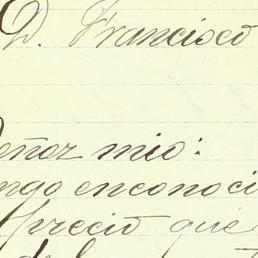 D. Francisco
eñor mio:
ngo enconoci
preció que